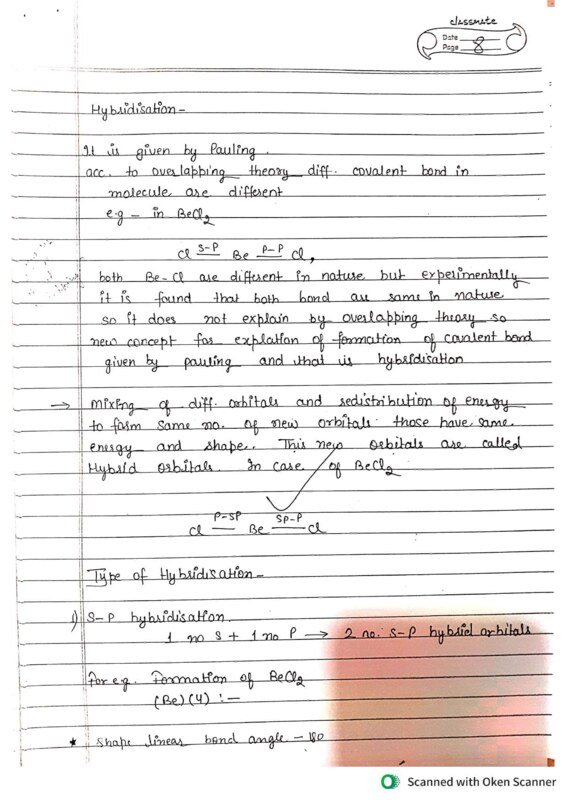 classmate
Date
Page 8
Hybridisation -
It is given by Pauling.
acc. to overlapping theory diff. covalent bond in
molecule are different
e.g - in BeCl2
Cl S-P Be P-P Cl,
both Be-Cl are different in nature but experimentally
it is found that both bond are same in nature
so it does not explain by overlapping theory so
new concept for explation of formation of covalent bond
given by pauling and that is hybridisation
→ mixing of diff. orbitals and redistribution of energy
to form same no. of new orbitals those have same
energy and shape. This new orbitals are called
Hybrid orbitals. In case of BeCl2
Cl P-SP Be SP-P Cl
Type of Hybridisation -
1) S-P hybridisation.
1 no S + 1 no P → 2 no. S-P hybrid orbitals
For e.g. Formation of BeCl2
(Be) (4) :-
* Shape linear bond angle - 180
Scanned with Oken Scanner